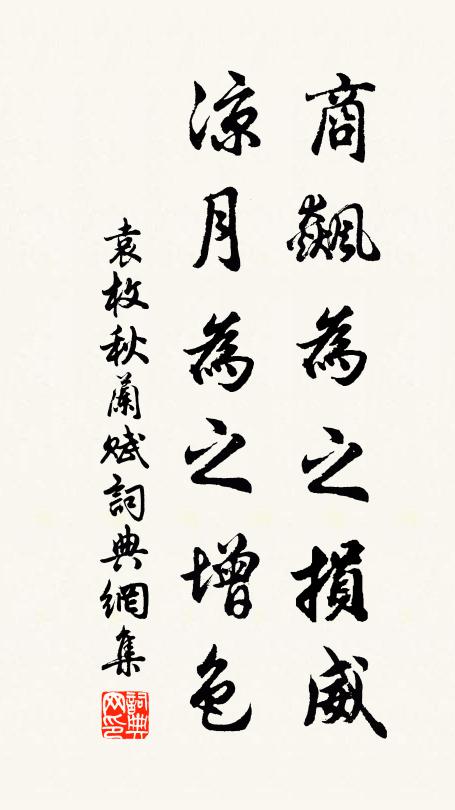 商飆為之損威
涼月為之增色
袁枚秋蘭賦詞典網集
詞典網印